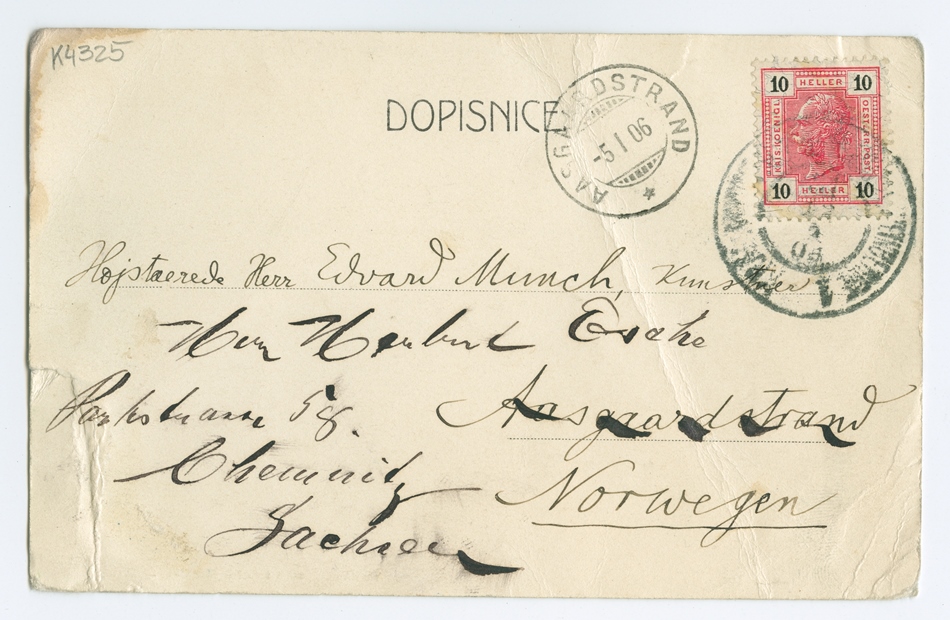 K4325
DOPISNICE
AASGAARDSTRAND
-5 I 06
10 HELLER 10
KAIS. KOENIGL.
OESTERR. POST
10 HELLER 10
1
Højstærede Herr Edvard Munch, Kunstner
Herrn Herbert Esche
Aasgaardstrand
Parkstrasse 58.
Chemnitz
Norwegen
Sachsen